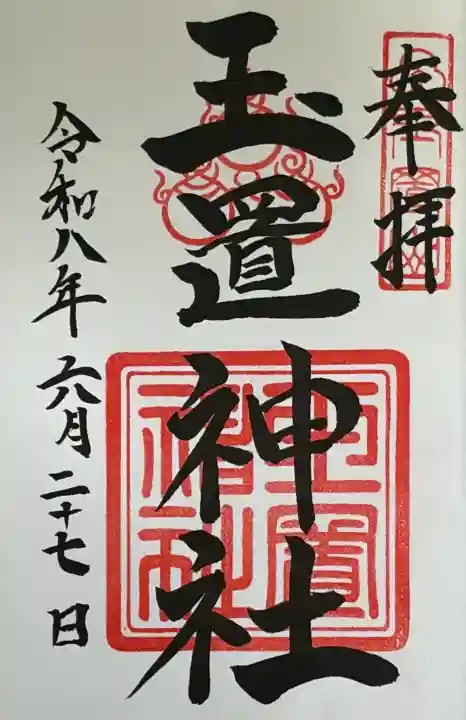 奉拝
玉置神社
令和八年六月二十七日